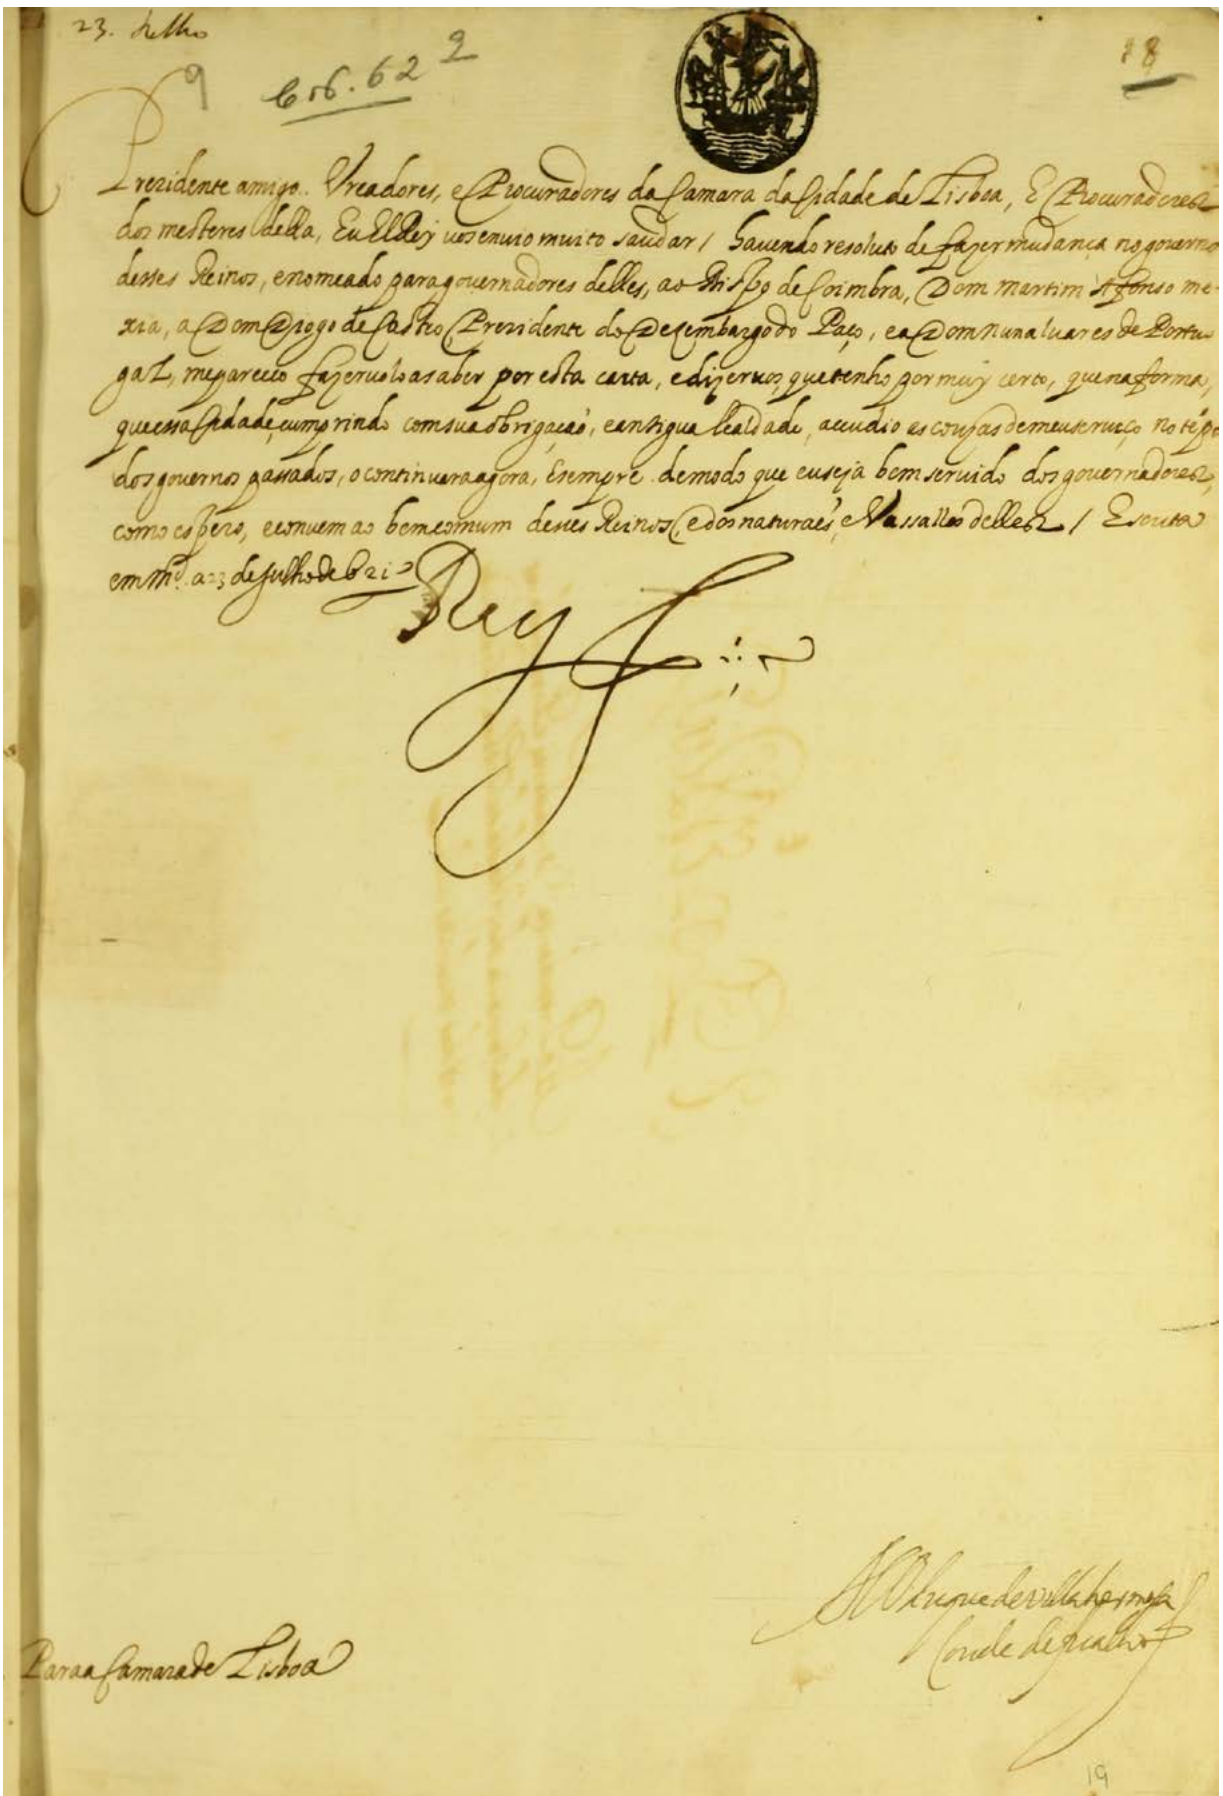 23. Julho
9
18
Prezidente amigo. Vreadores, e Procuradores da Camara da Cidade de Lisboa, E Procuradores
dos mesteres della, Eu ElRey uos enuio muito saudar / Hauendo resoluto de fazer mudança no gouerno
desses Reinos, e nomeado para gouernadores delles, ao Bispo de Coimbra, Dom martim Afonso me-
xia, a Dom Diogo de Castro, Prezidente do Dezembargo do Paço, e a Dom Nunaluares de Portu-
gal, me pareceo fazeruolo a saber por esta carta, e dizeruos, que tenho por muy certo, que na forma,
que essa Cidade, cumprindo com sua obrigação, e antigua lealdade, accudio as cousas de meu seruiço no tẽpo
dos gouernos passados, o continuara agora, E sempre de modo que eu seja bem seruido dos gouernadores,
como espero, e conuem ao bem comum desses Reinos, e dos naturaes, e Vassallos delles / Escrita
em M.d a 23 de Julho de 621
Rey
O Duque de Villahermosa
Conde de ficalho
Para a Camara de Lisboa
19